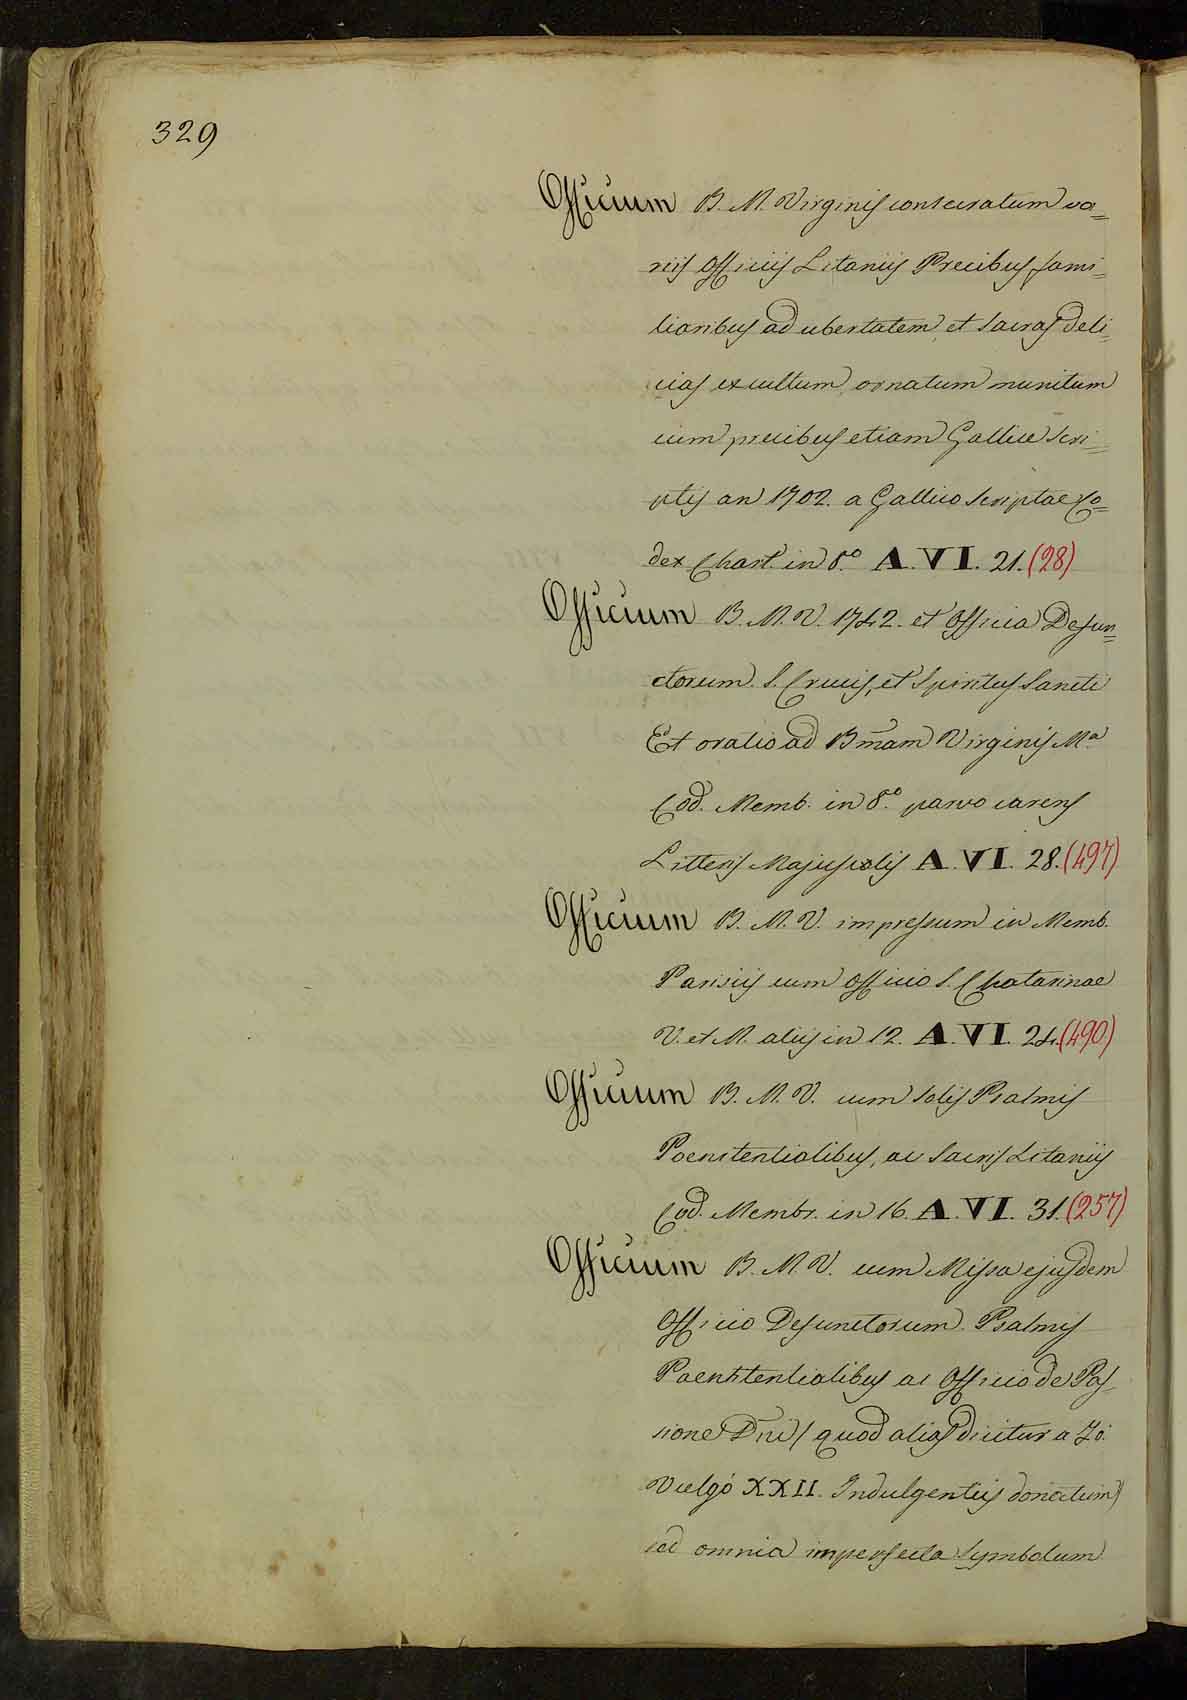 329
Officium B. M. Virginis consecratum va=
riis Officiis Litaniis Precibus fami=
liaribus ad ubertatem, et sacras deli=
cias excultum, ornatum munitum
cum precibus etiam Gallice scri=
ptis an 1702. a Gallico scriptae Co=
dex Chart. in 8.º A. VI. 21. (28)
Officium B. M. V. 1742. et Officia Defun=
ctorum. S. Crucis, et Spiritus Sancti
Et oratio ad Bm̃am Virginis M.ª
Cod. Memb. in 8.º parvo carens
Litteris Majusculis A. VI. 28. (497)
Officium B. M. V. impressum in Memb.
Parisiis cum Officio S. Chatarinae
V. et M. aliis in 12. A. VI. 24. (490)
Officium B. M. V. cum solis Psalmis
Poenitentialibus, ac Sacris Litaniis
Cod. Membr. in 16. A. VI. 31. (257)
Officium B. M. V. cum Missa ejusdem
Officio Defunctorum. Psalmis
Poenitentialibus ac Officio de Pas=
sione Dñi (quod alias dicitur a Jo:
Vulgó XXII. Indulgentiis donatum)
sed omnia imperfecta Symbolum